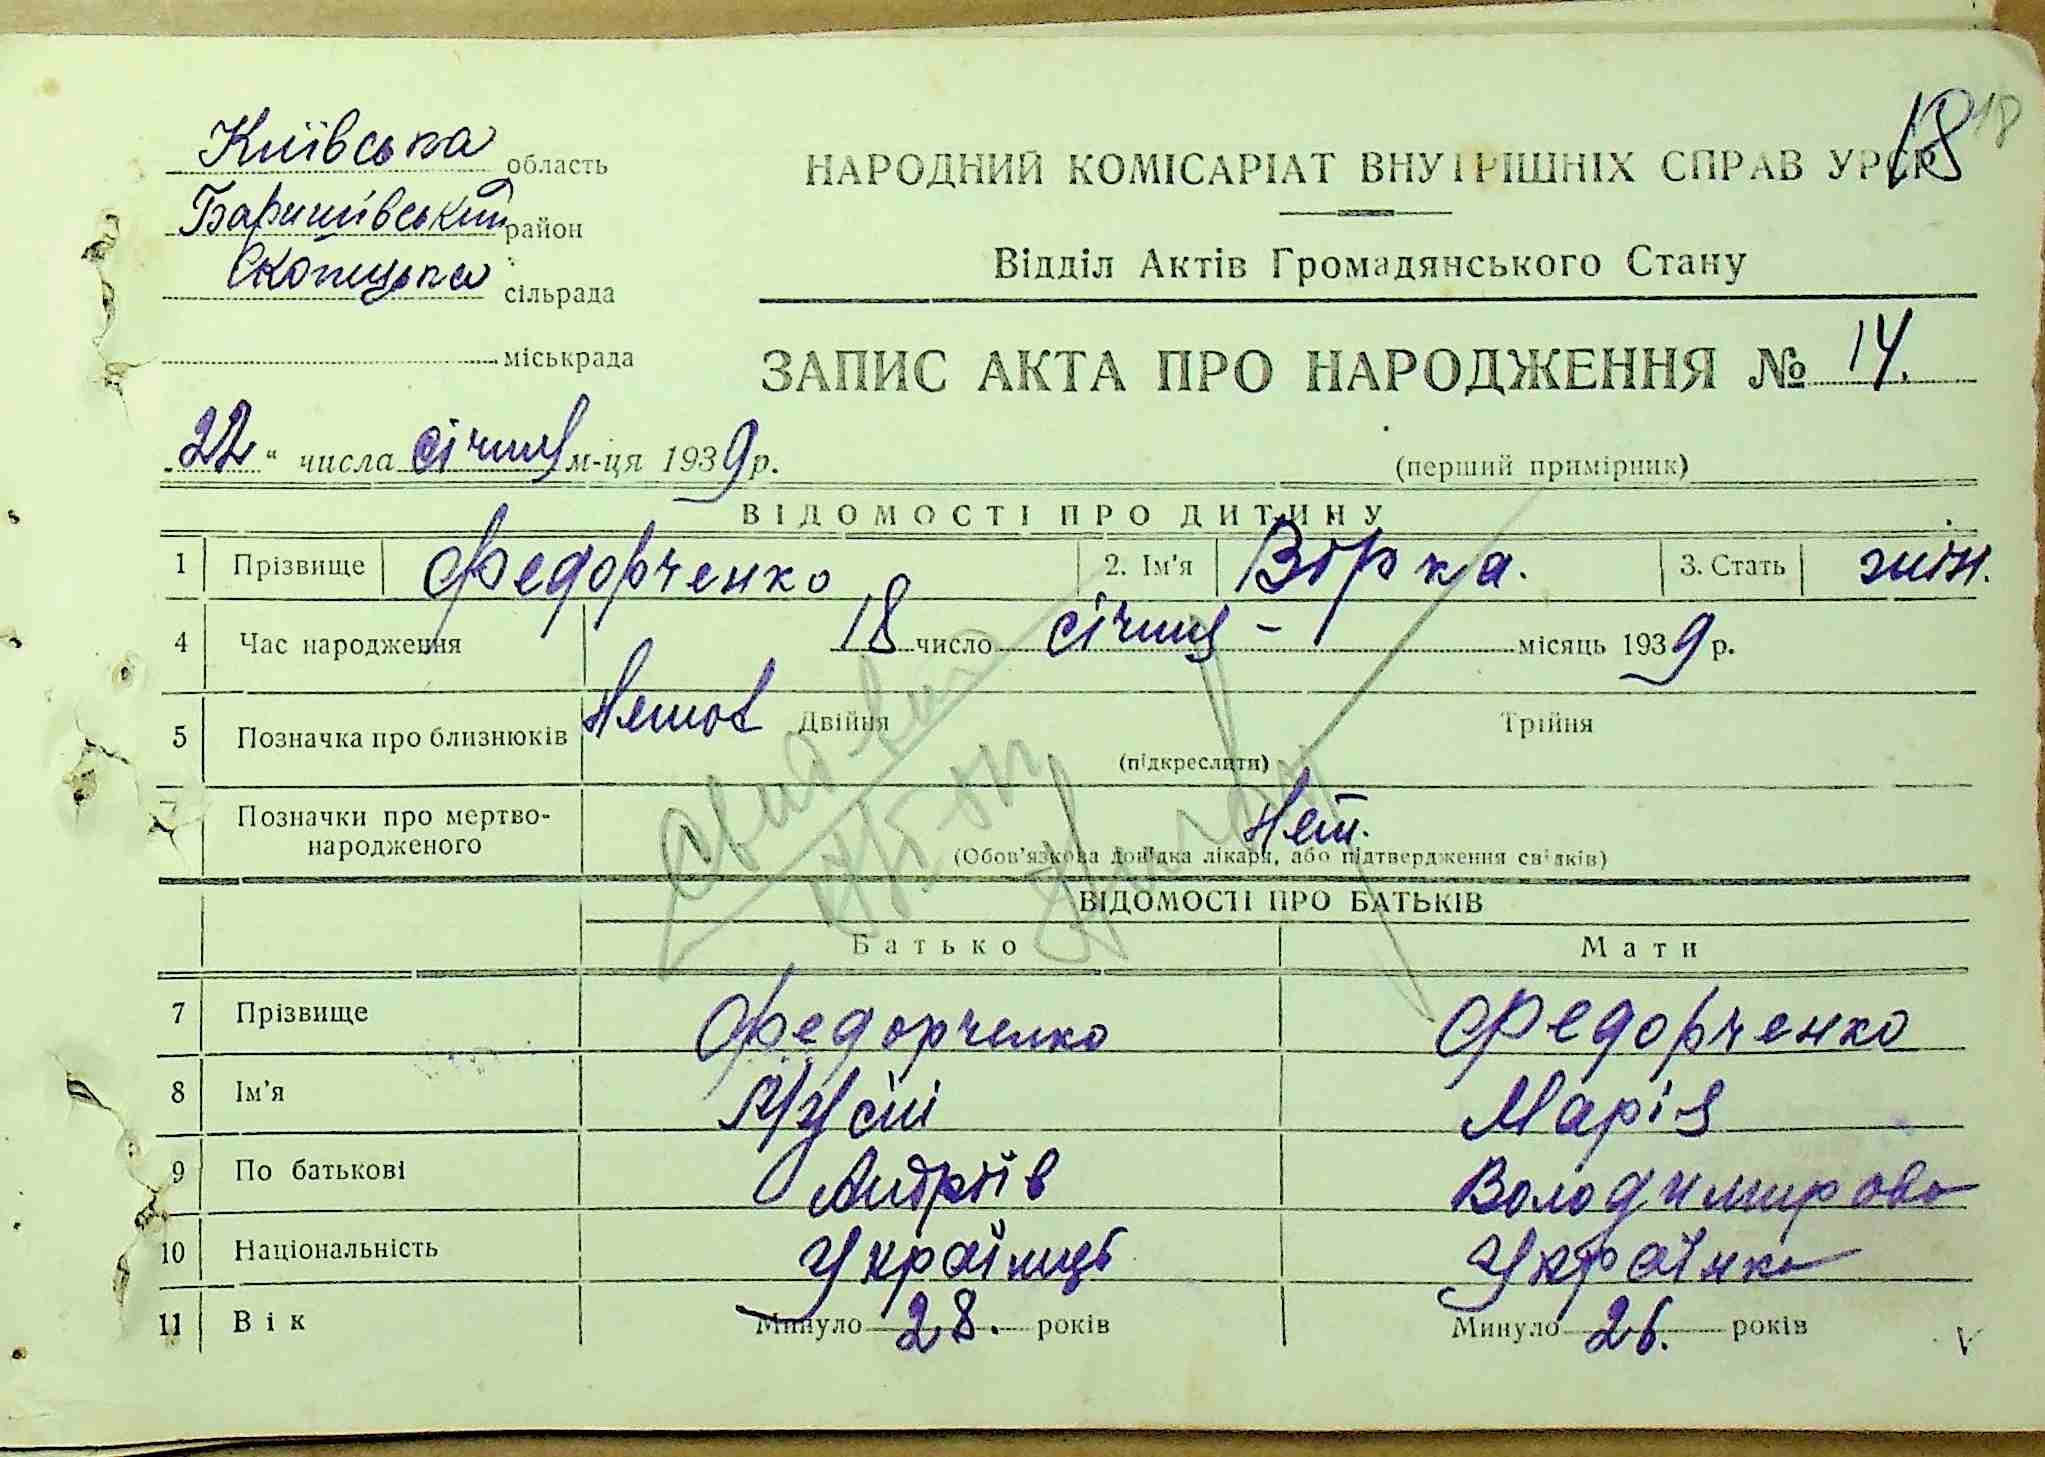 18 18
Київська область
НАРОДНИЙ КОМІСАРІАТ ВНУТРІШНІХ СПРАВ УРСР
Баришівський район
Відділ Актів Громадянського Стану
Скопцька сільрада
міськрада
ЗАПИС АКТА ПРО НАРОДЖЕННЯ № 14.
„22“ числа січня м-ця 1939 р.
(перший примірник)
ВІДОМОСТІ ПРО ДИТИНУ
1 Прізвище Федорченко 2. Ім'я Вірка. 3. Стать жін.
4 Час народження 18 число січня - місяць 1939 р.
5 Позначка про близнюків Двійня Трійня
(підкреслити)
Позначки про мертво-
народженого Нет.
(Обов'язкова довідка лікаря, або підтвердження свідків)
ВІДОМОСТІ ПРО БАТЬКІВ
Батько Мати
7 Прізвище Федорченко Федорченко
8 Ім'я Марія
9 По батькові Андріїв Володимирова
10 Національність Українець Українка
11 Вік Минуло 28. років Минуло 26. років